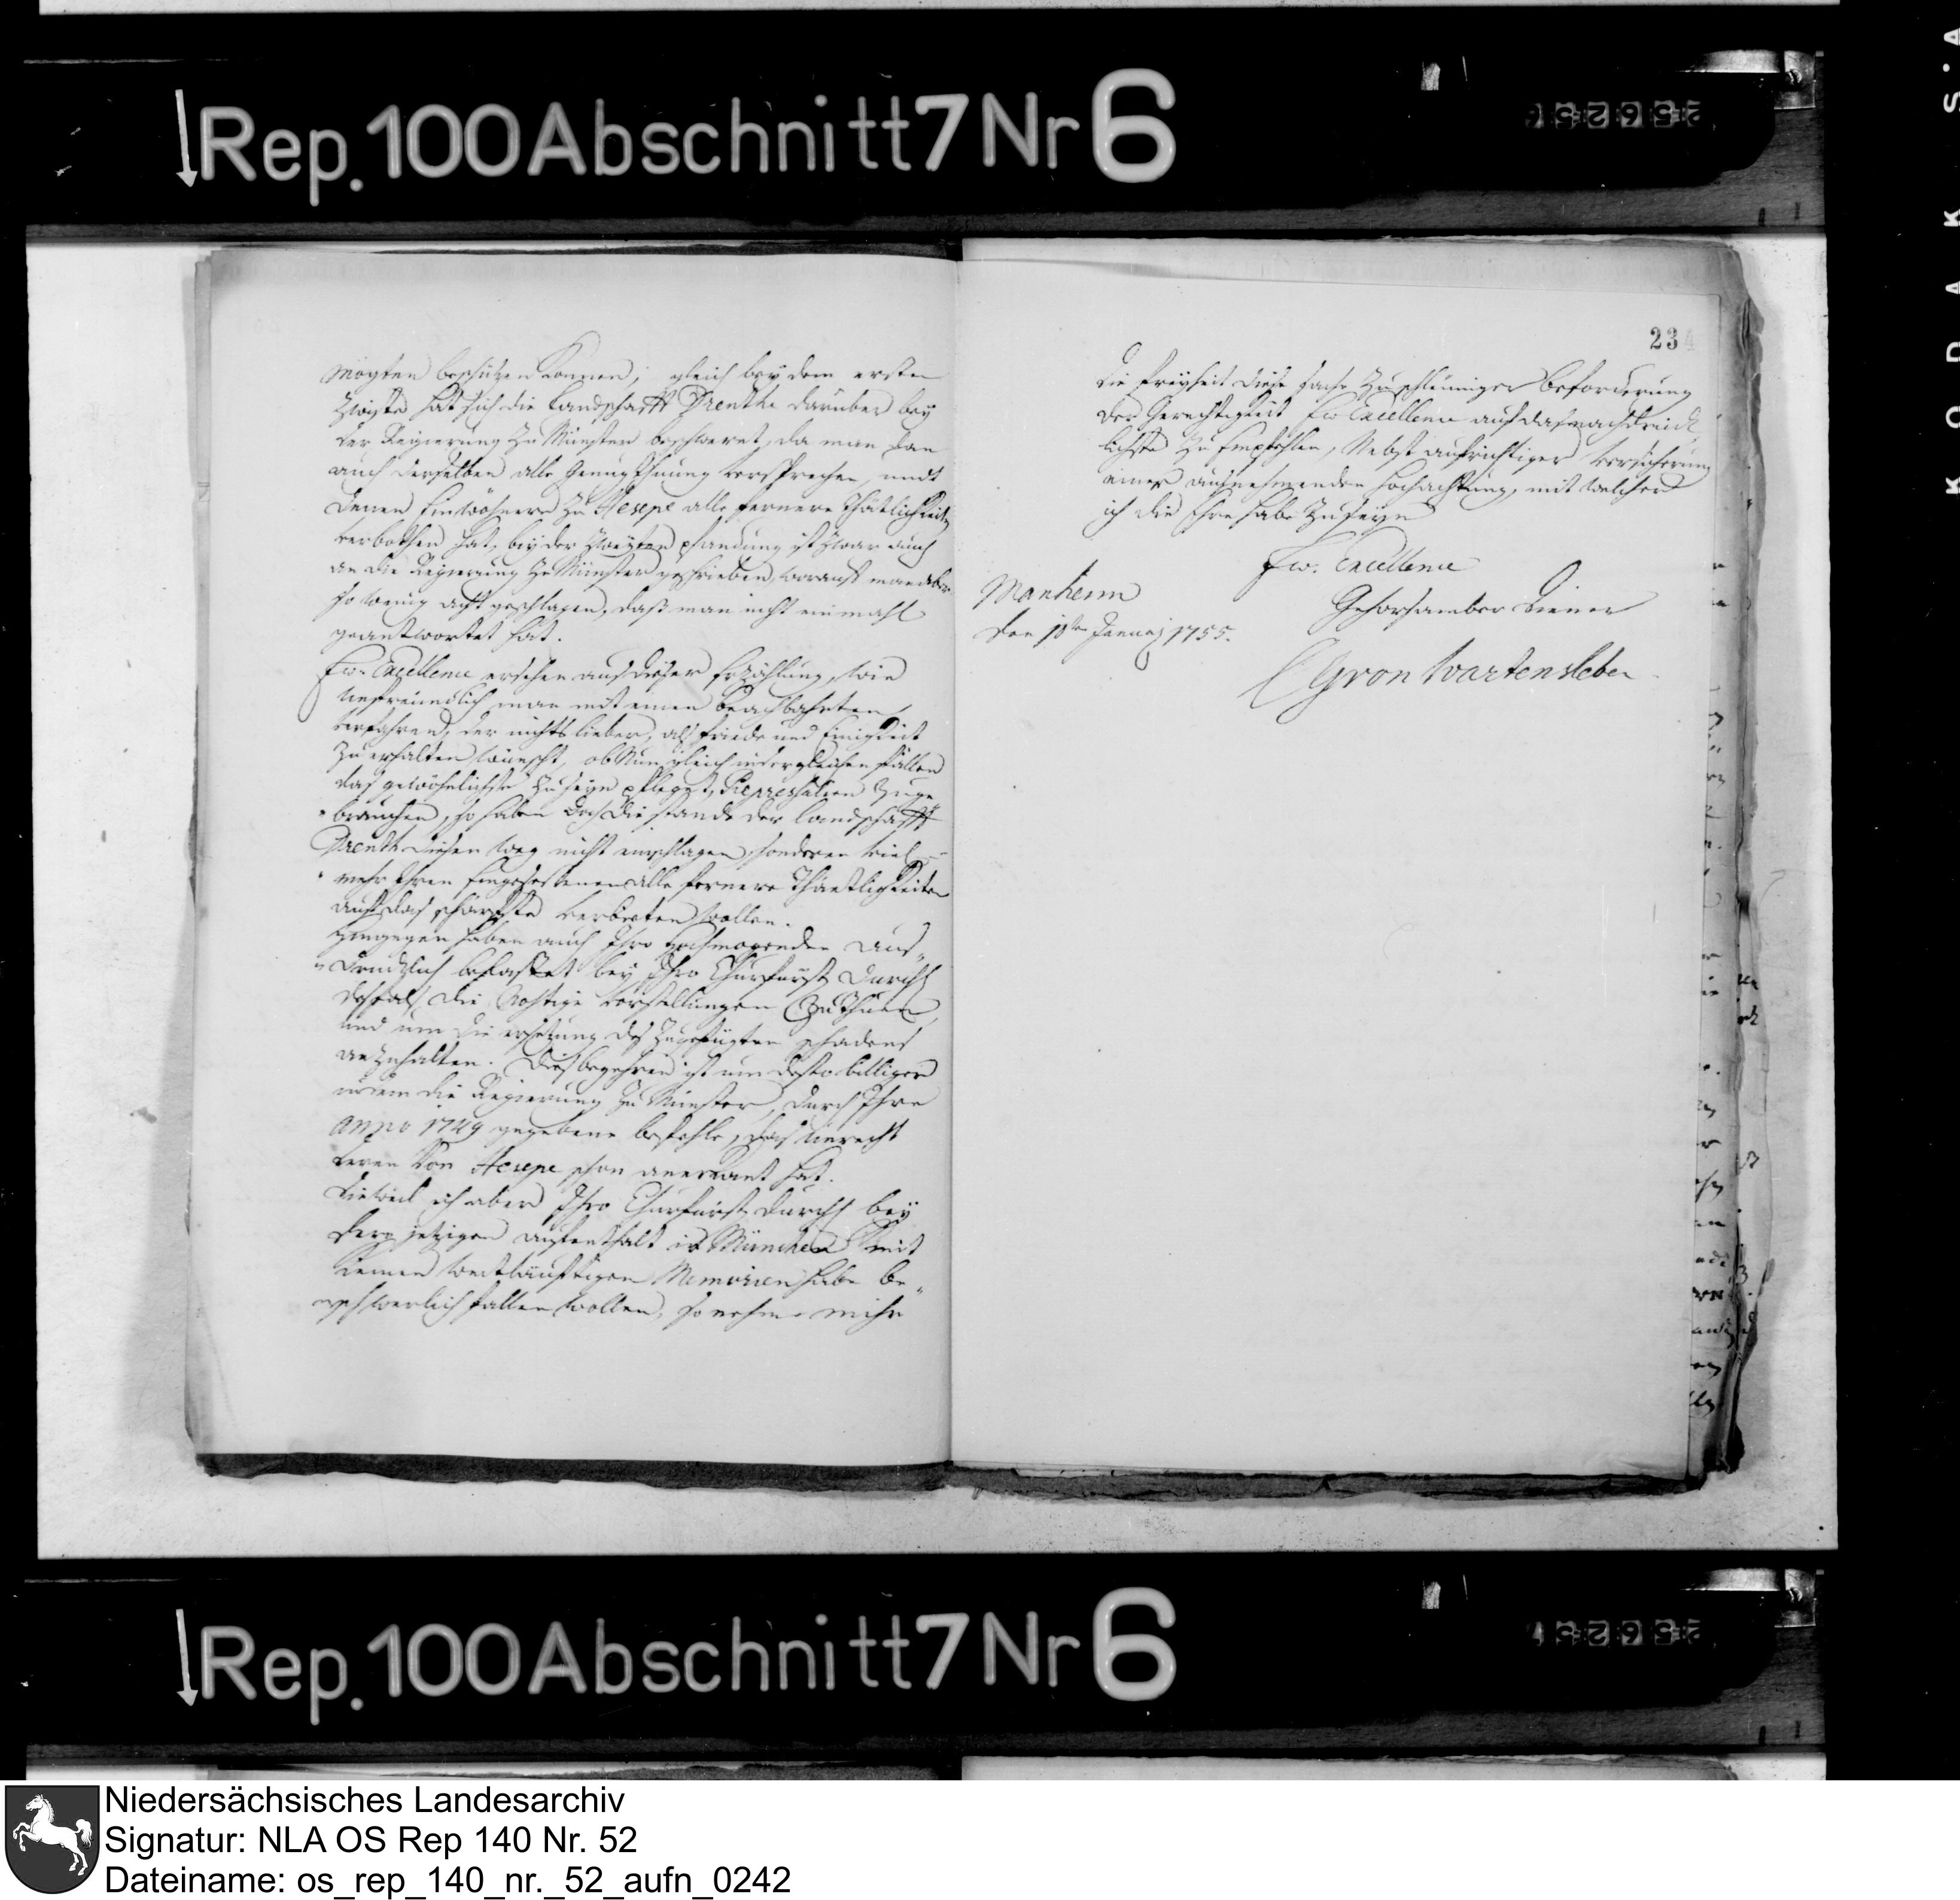 Rep. 100 Abschnitt 7 Nr 6
mögten beschützen können; gleich bey dem ersten
hat sich die Landschafft Drenthe darüber bey
der Regierung zu Münster beschweret, da man dan
auch derselben alle Genugthuung versprochen, undt
denen Einwohnern zu Hesepe alle fernere Thätlichkeiten
verbothen hat, bey der zweyten pfandung ist zwar auch
an die Regierung zu Münster geschrieben, worauff man aber
so wenig acht geschlagen, daß man nicht einmahl
geantwortet hat.
Ew. Excellence ersehen aus dieser Erzählung, wie
unfreundlich man mit einen Benachbahrten
verfahren, der nichts lieber, als friede und Einigkeit
zu erhalten wünscht, ob Nun gleich in dergleichen fällen
das gewöhnlichste zu seyn pfleget, Repressalien zu ge
brauchen, so haben doch die stände der Landschafft
Drenth diesen weg nicht einschlagen, sonderen viel
mehr Ihren Eingesessenen alle fernere Thäetligkeiten
auf das schärffste verbieten wollen.
Hingegen haben auch Ihro Hochmogenden aus„
„drücklich belastet bey Ihro Churfürstl Durchl
desfals die nöhtige vorstellungen zu Thuen,
und um die ersetzung des zugefügten schadens
anzuhalten. Dies begehren ist um desto billiger
indem die Regierung zu Münster, durch Ihre
Anno 1749 gegebene befehle, das unrecht
deren von Hesepe schon anerkant hat.
dieweil ich aber Ihro Churfürstl Durchl bey
Dero jetzigen auffenthalt in München mit
keinen weitläufftigen Memorien habe be„
„schwerlich fallen wollen, so nehme mihr
234
die freyheit diese sache zu schleuniger beforderung
der Gerechtigkeit Ew Excellence auf das nachdrück
lichste zu Empfehlen, Nebst aufrichtiger versicherung
einer ausnehmenden hochachtung, mit welcher
ich die Ehre habe zu seyn
Ew. Excellence
Manheim
den 18ten Januarj 1755.
Gehorsambster Diener
CGvon Wartensleben
Rep. 100 Abschnitt 7 Nr 6
Niedersächsisches Landesarchiv
Signatur: NLA OS Rep 140 Nr. 52
Dateiname: os_rep_140_nr._52_aufn_0242